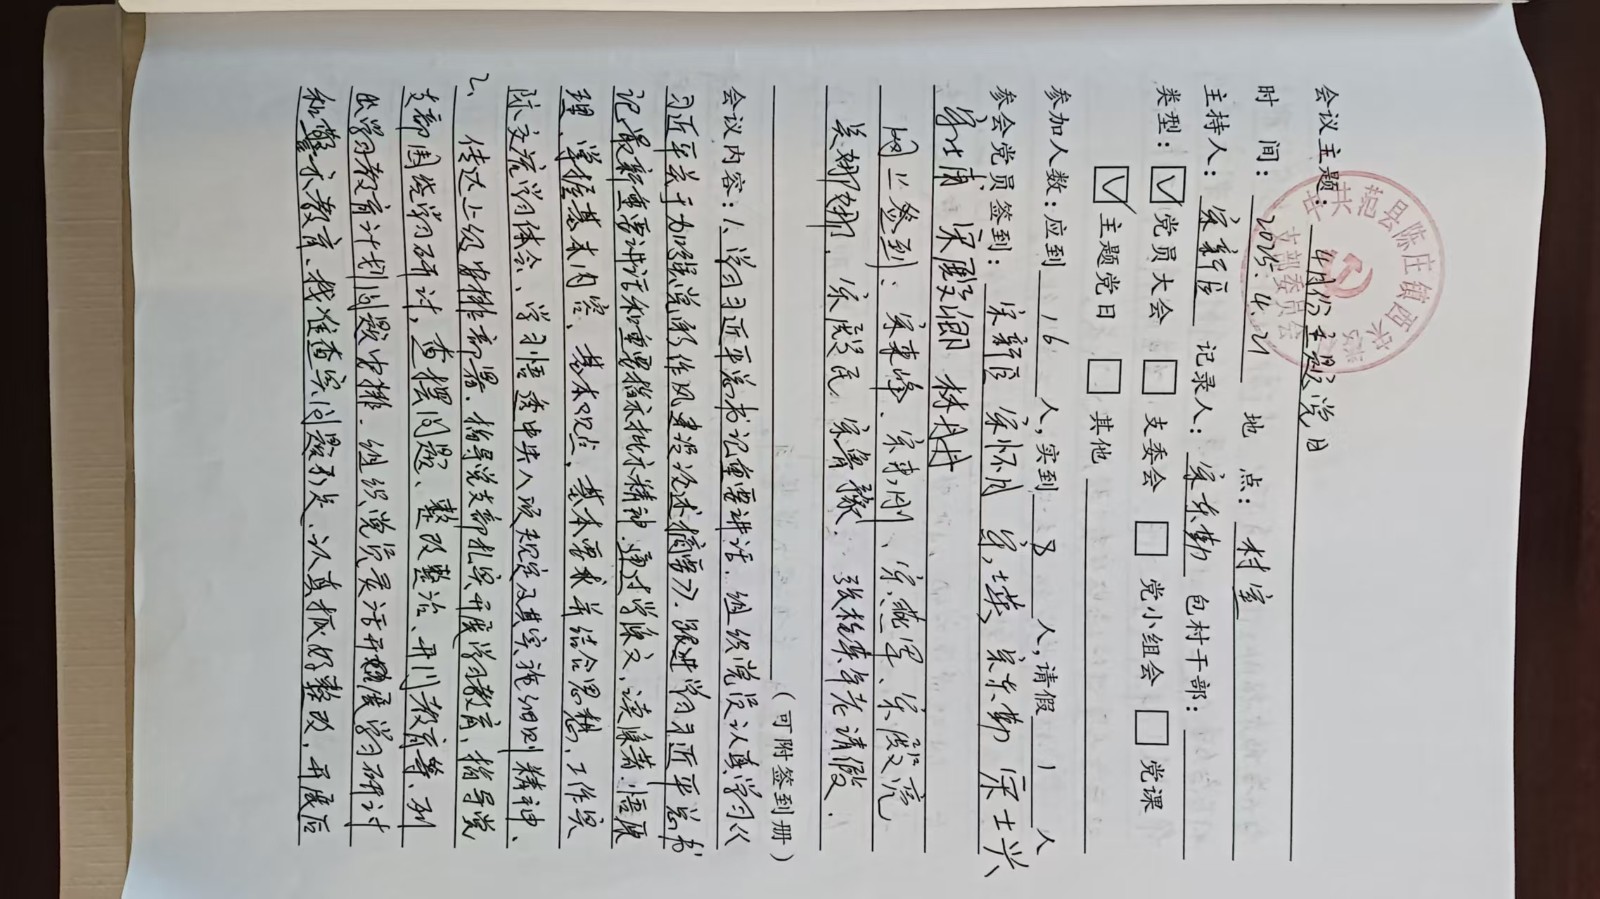 会议主题：4月份主题党日
时 间：2025.4.21 地 点：村室
主持人：宋新位 记录人：宋东勤 包村干部：
类型：☑党员大会 □支委会 □党小组会 □党课
☑主题党日 □其他
参加人数：应到 16 人，实到 8 人，请假 1 人
参会党员签到：宋新位 宋怀月 宋东勤 宋士兴
林丹丹
网上签到：宋东峰、宋东刚、
请假.
（可附签到册）
会议内容：1、学习习近平总书记重要讲话.组织党员认真学习《
习近平关于加强党的作风建设论述摘要》.跟进学习习近平总书
记最新重要讲话和重要指示批示精神.通过学原文、读原著.悟原
理、掌握基本内容、基本观点、基本要求并结合思想、工作实
际交流学习体会、学习悟透中央八项规定及其实施细则精神、
2、传达上级安排部署.指导党支部扎实开展学习教育、指导党
支部围绕学习研讨，查摆问题、整改整治、开门教育等、列
出学习教育计划问题中排.组织党员灵活开展学习研讨
和警示教育、找准查实问题不足、认真抓好整改、开展后
中共 县陈庄镇西宋
支部委员会